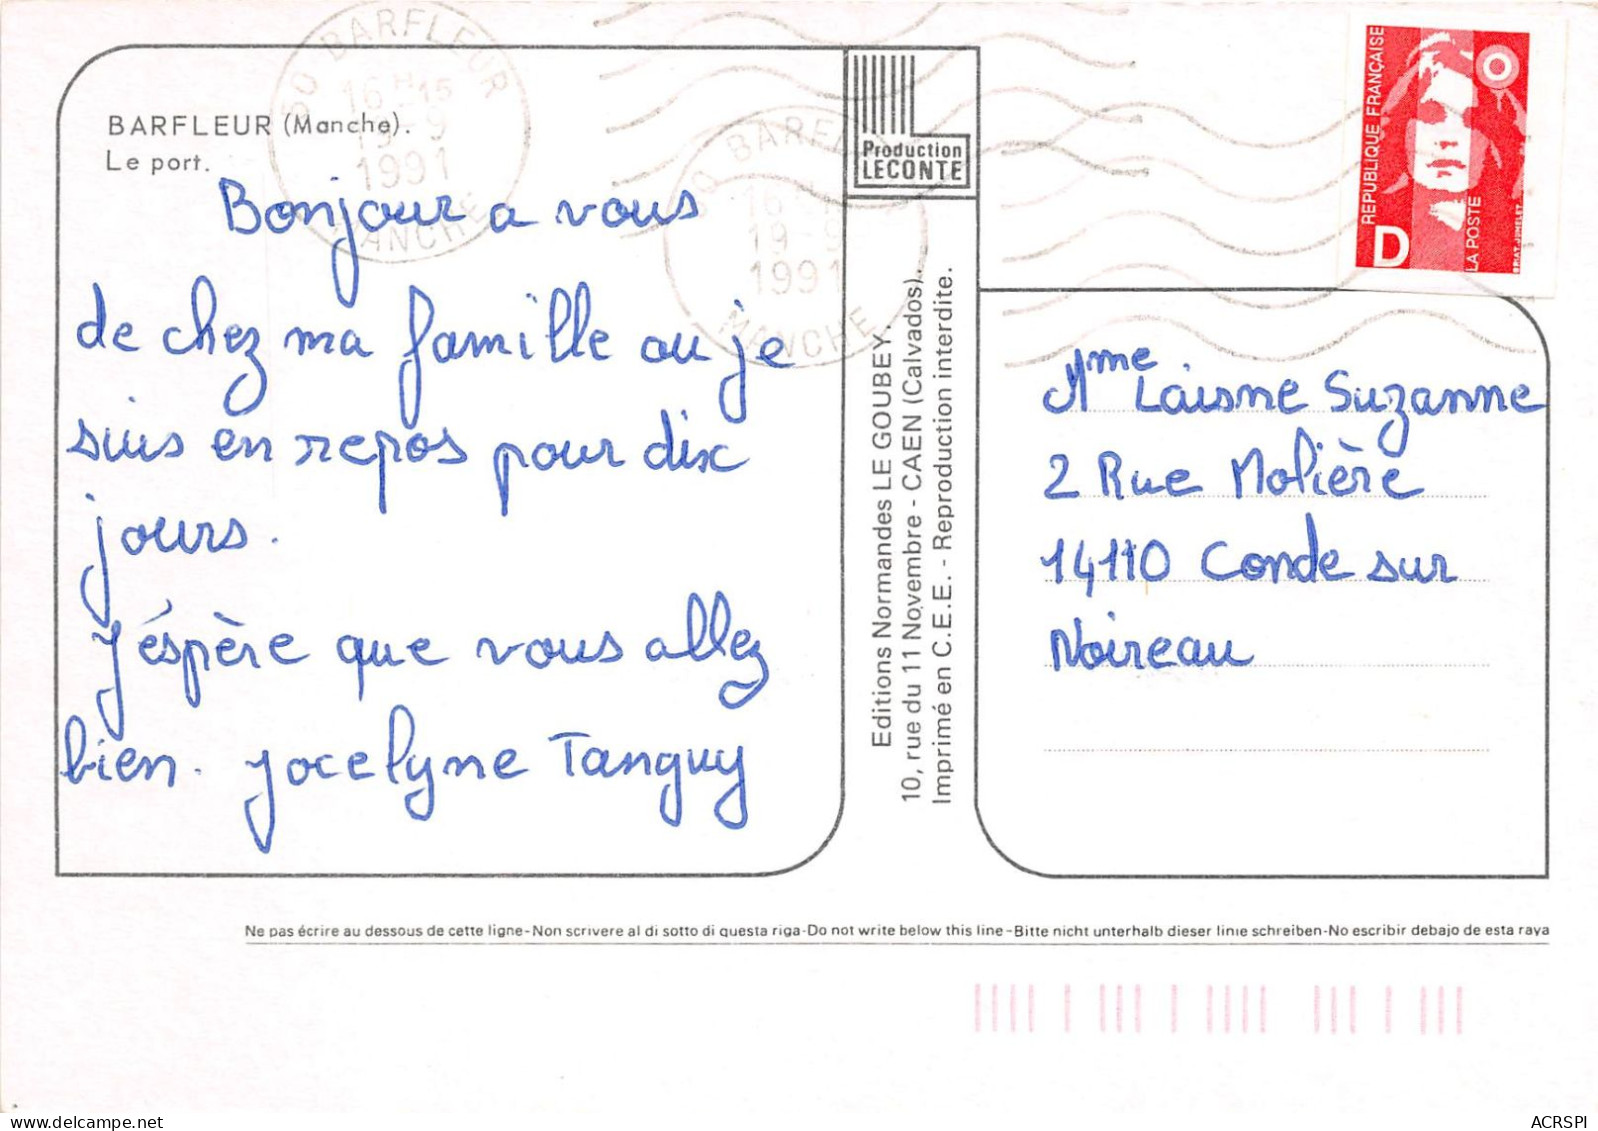 BARFLEUR (Manche).
Le port.
50 BARFLEUR
16 H 15
19-9
1991
MANCHE
50 BARFLEUR
19-9
1991
MANCHE
Bonjour a vous
de chez ma famille ou je
suis en repos pour dix
jours.
J'éspère que vous allez
bien. Jocelyne Tanguy
Production
LECONTE
Editions Normandes LE GOUBEY.
10, rue du 11 Novembre - CAEN (Calvados).
Imprimé en C.E.E. - Reproduction interdite.
RÉPUBLIQUE FRANÇAISE
D
LA POSTE
BRIAT-JUMELET
Mme Laisne Suzanne
2 Rue Molière
14110 Conde sur
Noireau
Ne pas écrire au dessous de cette ligne-Non scrivere al di sotto di questa riga-Do not write below this line-Bitte nicht unterhalb dieser linie schreiben-No escribir debajo de esta raya
delcampe.net
ACRSPI